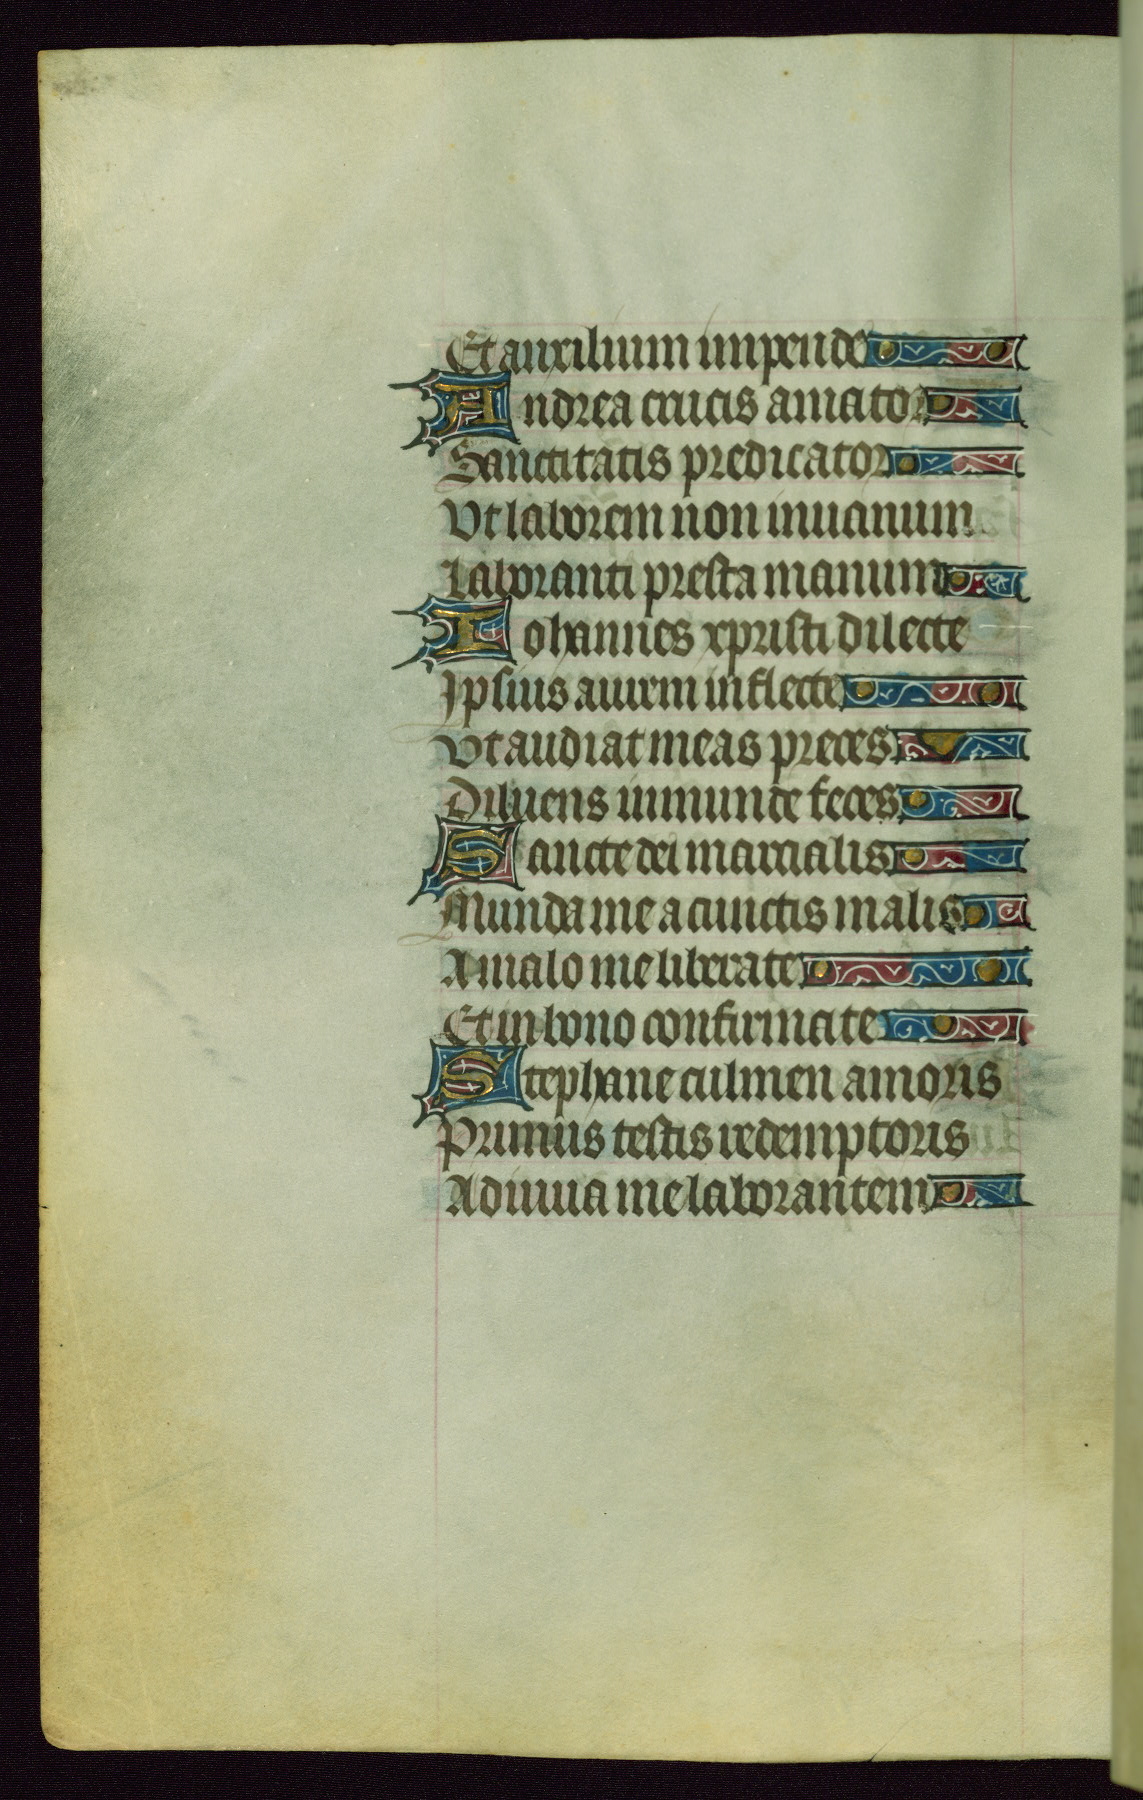 Et auxilium impende
Andrea crucis amator
Sanctitatis predicator
Vt laborem non inuanum
Laboranti presta manum
Iohannes xpristi dilecte
Ipsius aurem inflecte
Vt audiat meas preces
Diluens inmunde feces
Sancte dei marcialis
Munda me a cunctis malis
A malo me liberate
Et in bono confirmate
Stephane culmen amoris
Primus testis redemptoris
Adiuua me laborantem